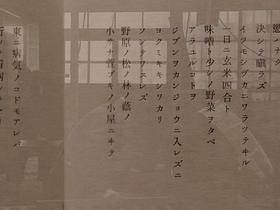 慾ハナク
決シテ瞋ラズ
イツモシヅカニワラッテヰル
一日ニ玄米四合ト
味噌ト少シノ野菜ヲタベ
アラユルコトヲ
ジブンヲカンジョウニ入レズニ
ヨクミキキシワカリ
ソシテワスレズ
野原ノ松ノ林ノ蔭ノ
小サナ萱ブキノ小屋ニヰテ
東ニ病気ノコドモアレバ
行ッテ看病シテヤリ